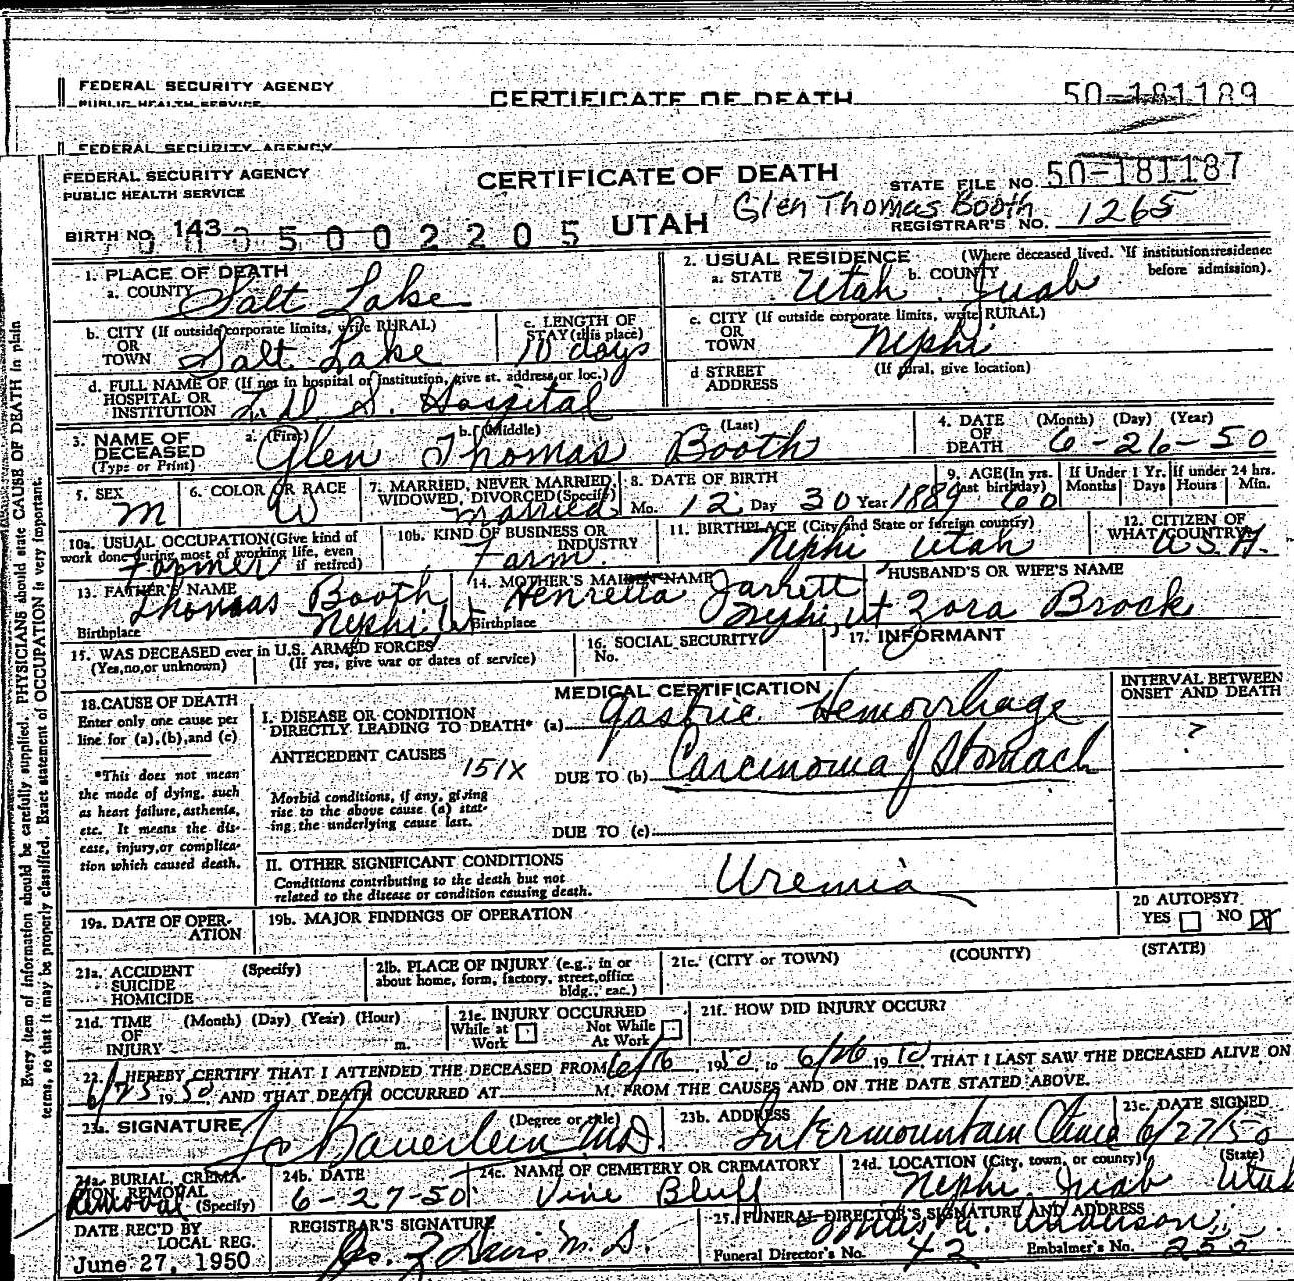 FEDERAL SECURITY AGENCY
PUBLIC HEALTH SERVICE
CERTIFICATE OF DEATH
50-181189
FEDERAL SECURITY AGENCY
FEDERAL SECURITY AGENCY
PUBLIC HEALTH SERVICE
CERTIFICATE OF DEATH
STATE FILE NO. 50-181187
Glen Thomas Booth
UTAH
REGISTRAR'S NO. 1265
BIRTH NO. 143 0 0 5 0 0 2 2 0 5
1. PLACE OF DEATH
a. COUNTY Salt Lake
2. USUAL RESIDENCE (Where deceased lived. If institution: residence before admission).
a. STATE Utah b. COUNTY Juab
b. CITY (If outside corporate limits, write RURAL)
OR
TOWN Salt Lake
c. LENGTH OF
STAY (this place)
10 days
c. CITY (If outside corporate limits, write RURAL)
OR
TOWN Nephi
d. FULL NAME OF (If not in hospital or institution, give st. address or loc.)
HOSPITAL OR
INSTITUTION L.D.S. Hospital
d STREET
ADDRESS
(If rural, give location)
3. NAME OF
DECEASED
(Type or Print)
a. (First) Glen
b. (Middle) Thomas
c. (Last) Booth
4. DATE
OF
DEATH
(Month) (Day) (Year)
6-26-50
5. SEX
M
6. COLOR OR RACE
W
7. MARRIED, NEVER MARRIED,
WIDOWED, DIVORCED (Specify)
Married
8. DATE OF BIRTH
Mo. 12 Day 30 Year 1889
9. AGE (In yrs.
last birthday)
60
If Under 1 Yr.
Months Days
if under 24 hrs.
Hours Min.
10a. USUAL OCCUPATION (Give kind of
work done during most of working life, even
if retired)
Farmer
10b. KIND OF BUSINESS OR
INDUSTRY
Farm
11. BIRTHPLACE (City and State or foreign country)
Nephi Utah
12. CITIZEN OF
WHAT COUNTRY?
U.S.A.
13. FATHER'S NAME
Thomas Booth
Birthplace Nephi, Ut
14. MOTHER'S MAIDEN NAME
Henretta Jarrett
Birthplace Nephi, Ut
HUSBAND'S OR WIFE'S NAME
Zora Brock
15. WAS DECEASED ever in U.S. ARMED FORCES
(Yes, no, or unknown)
(If yes, give war or dates of service)
16. SOCIAL SECURITY
No.
17. INFORMANT
18. CAUSE OF DEATH
Enter only one cause per
line for (a), (b), and (c)
*This does not mean
the mode of dying, such
as heart failure, asthenia,
etc. It means the dis-
ease, injury, or complica-
tion which caused death.
MEDICAL CERTIFICATION
INTERVAL BETWEEN
ONSET AND DEATH
I. DISEASE OR CONDITION
DIRECTLY LEADING TO DEATH* (a) Gastric Hemorrhage
?
ANTECEDENT CAUSES
151X
DUE TO (b) Carcinoma of Stomach
Morbid conditions, if any, giving
rise to the above cause (a) stat-
ing the underlying cause last.
DUE TO (c)
II. OTHER SIGNIFICANT CONDITIONS
Conditions contributing to the death but not
related to the disease or condition causing death.
Uremia
19a. DATE OF OPER-
ATION
19b. MAJOR FINDINGS OF OPERATION
20 AUTOPSY?
YES NO X
21a. ACCIDENT
SUICIDE
HOMICIDE
(Specify)
21b. PLACE OF INJURY (e.g., in or
about home, form, factory, street, office
bldg., eac.)
21c. (CITY or TOWN) (COUNTY) (STATE)
21d. TIME
OF
INJURY
(Month) (Day) (Year) (Hour)
m.
21e. INJURY OCCURRED
While at
Work
Not While
At Work
21f. HOW DID INJURY OCCUR?
22. I HEREBY CERTIFY THAT I ATTENDED THE DECEASED FROM 6/16, 1950 to 6/26 1950, THAT I LAST SAW THE DECEASED ALIVE ON
6/25 1950, AND THAT DEATH OCCURRED AT M. FROM THE CAUSES AND ON THE DATE STATED ABOVE.
23a. SIGNATURE
(Degree or title)
Bauerlein M.D.
23b. ADDRESS
Intermountain Clinic
23c. DATE SIGNED
6/27/50
24a. BURIAL, CREMA-
TION, REMOVAL
(Specify)
Removal
24b. DATE
6-27-50
24c. NAME OF CEMETERY OR CREMATORY
Vine Bluff
24d. LOCATION (City, town, or county) (State)
Nephi Juab Utah
DATE REC'D BY
LOCAL REG.
June 27, 1950
REGISTRAR'S SIGNATURE
Davis M.D.
25. FUNERAL DIRECTOR'S SIGNATURE AND ADDRESS
Anderson
Funeral Director's No. 42
Embalmer's No. 255
Every item of information should be carefully supplied. PHYSICIANS should state CAUSE OF DEATH in plain
terms, so that it may be properly classified. Exact statement of OCCUPATION is very important.